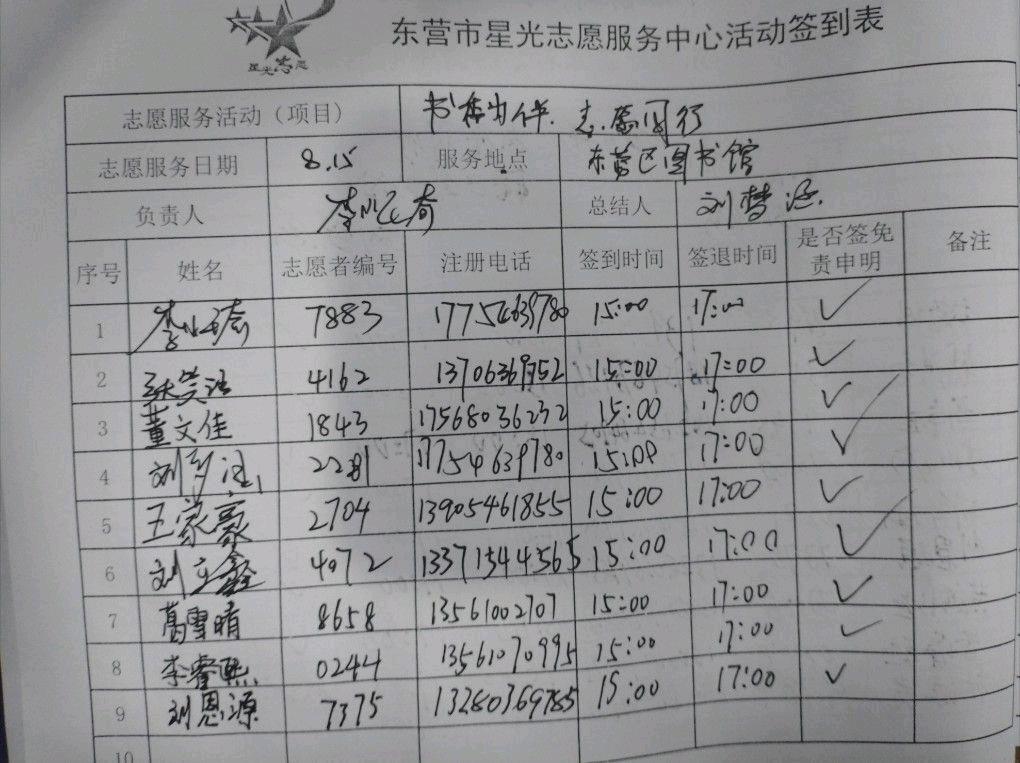 星光志愿
东营市星光志愿服务中心活动签到表
志愿服务活动（项目） 书香为伴 志愿同行
志愿服务日期 8.15 服务地点 东营区图书馆
负责人 总结人 刘梦涵
序号 姓名 志愿者编号 注册电话 签到时间 签退时间 是否签免责申明 备注
1 7883 17754639780 15:00 17:00 ✓
2 4162 13706369752 15:00 17:00 ✓
3 董文佳 1843 17568036232 15:00 17:00 ✓
4 刘梦涵 2281 17754639780 15:00 17:00 ✓
5 王家豪 2704 13905461855 15:00 17:00 ✓
6 4972 13371544565 15:00 17:00 ✓
7 葛雪晴 8658 13561002707 15:00 17:00 ✓
8 李睿熙 0244 13561070995 15:00 17:00 ✓
9 刘恩源 7375 13280369785 15:00 17:00 ✓
10